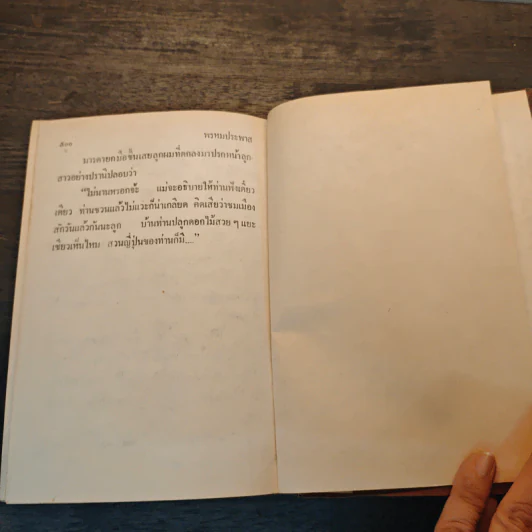 พรหมประพาส
มารดายกมือขึ้นเสยลูกผมที่ตกลงมาปรกหน้าลูก
สาวอย่างปรานีปลอบว่า
“ไม่นานหรอกซ้ะ แม่จะอธิบายให้ท่านฟังเดี๋ยว
เดียว ท่านชวนแล้วไม่แวะก็น่าเกลียด คิดเสียว่าชมเมือง
สักวันแล้วกันนะลูก บ้านท่านปลูกดอกไม้สวย ๆ แยะ
เชียวเพ็ญไหม สวนญี่ปุ่นของท่านก็มี...”